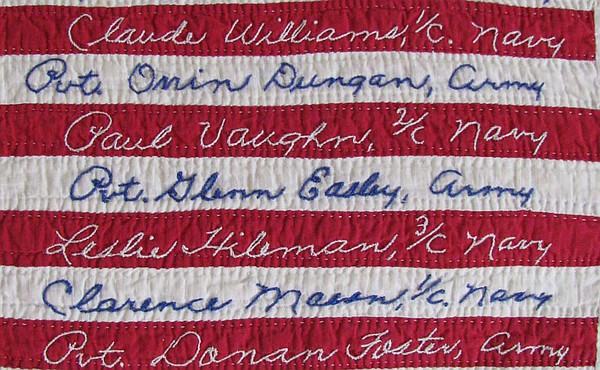 Claude Williams, 1/c. Navy
Pvt. Orrin Dungan, Army
Paul Vaughn, 2/c Navy
Pvt. Glenn Easley, Army
Leslie Hileman, 3/c Navy
Clarence Mason, 1/c. Navy
Pvt. Donan Foster, Army